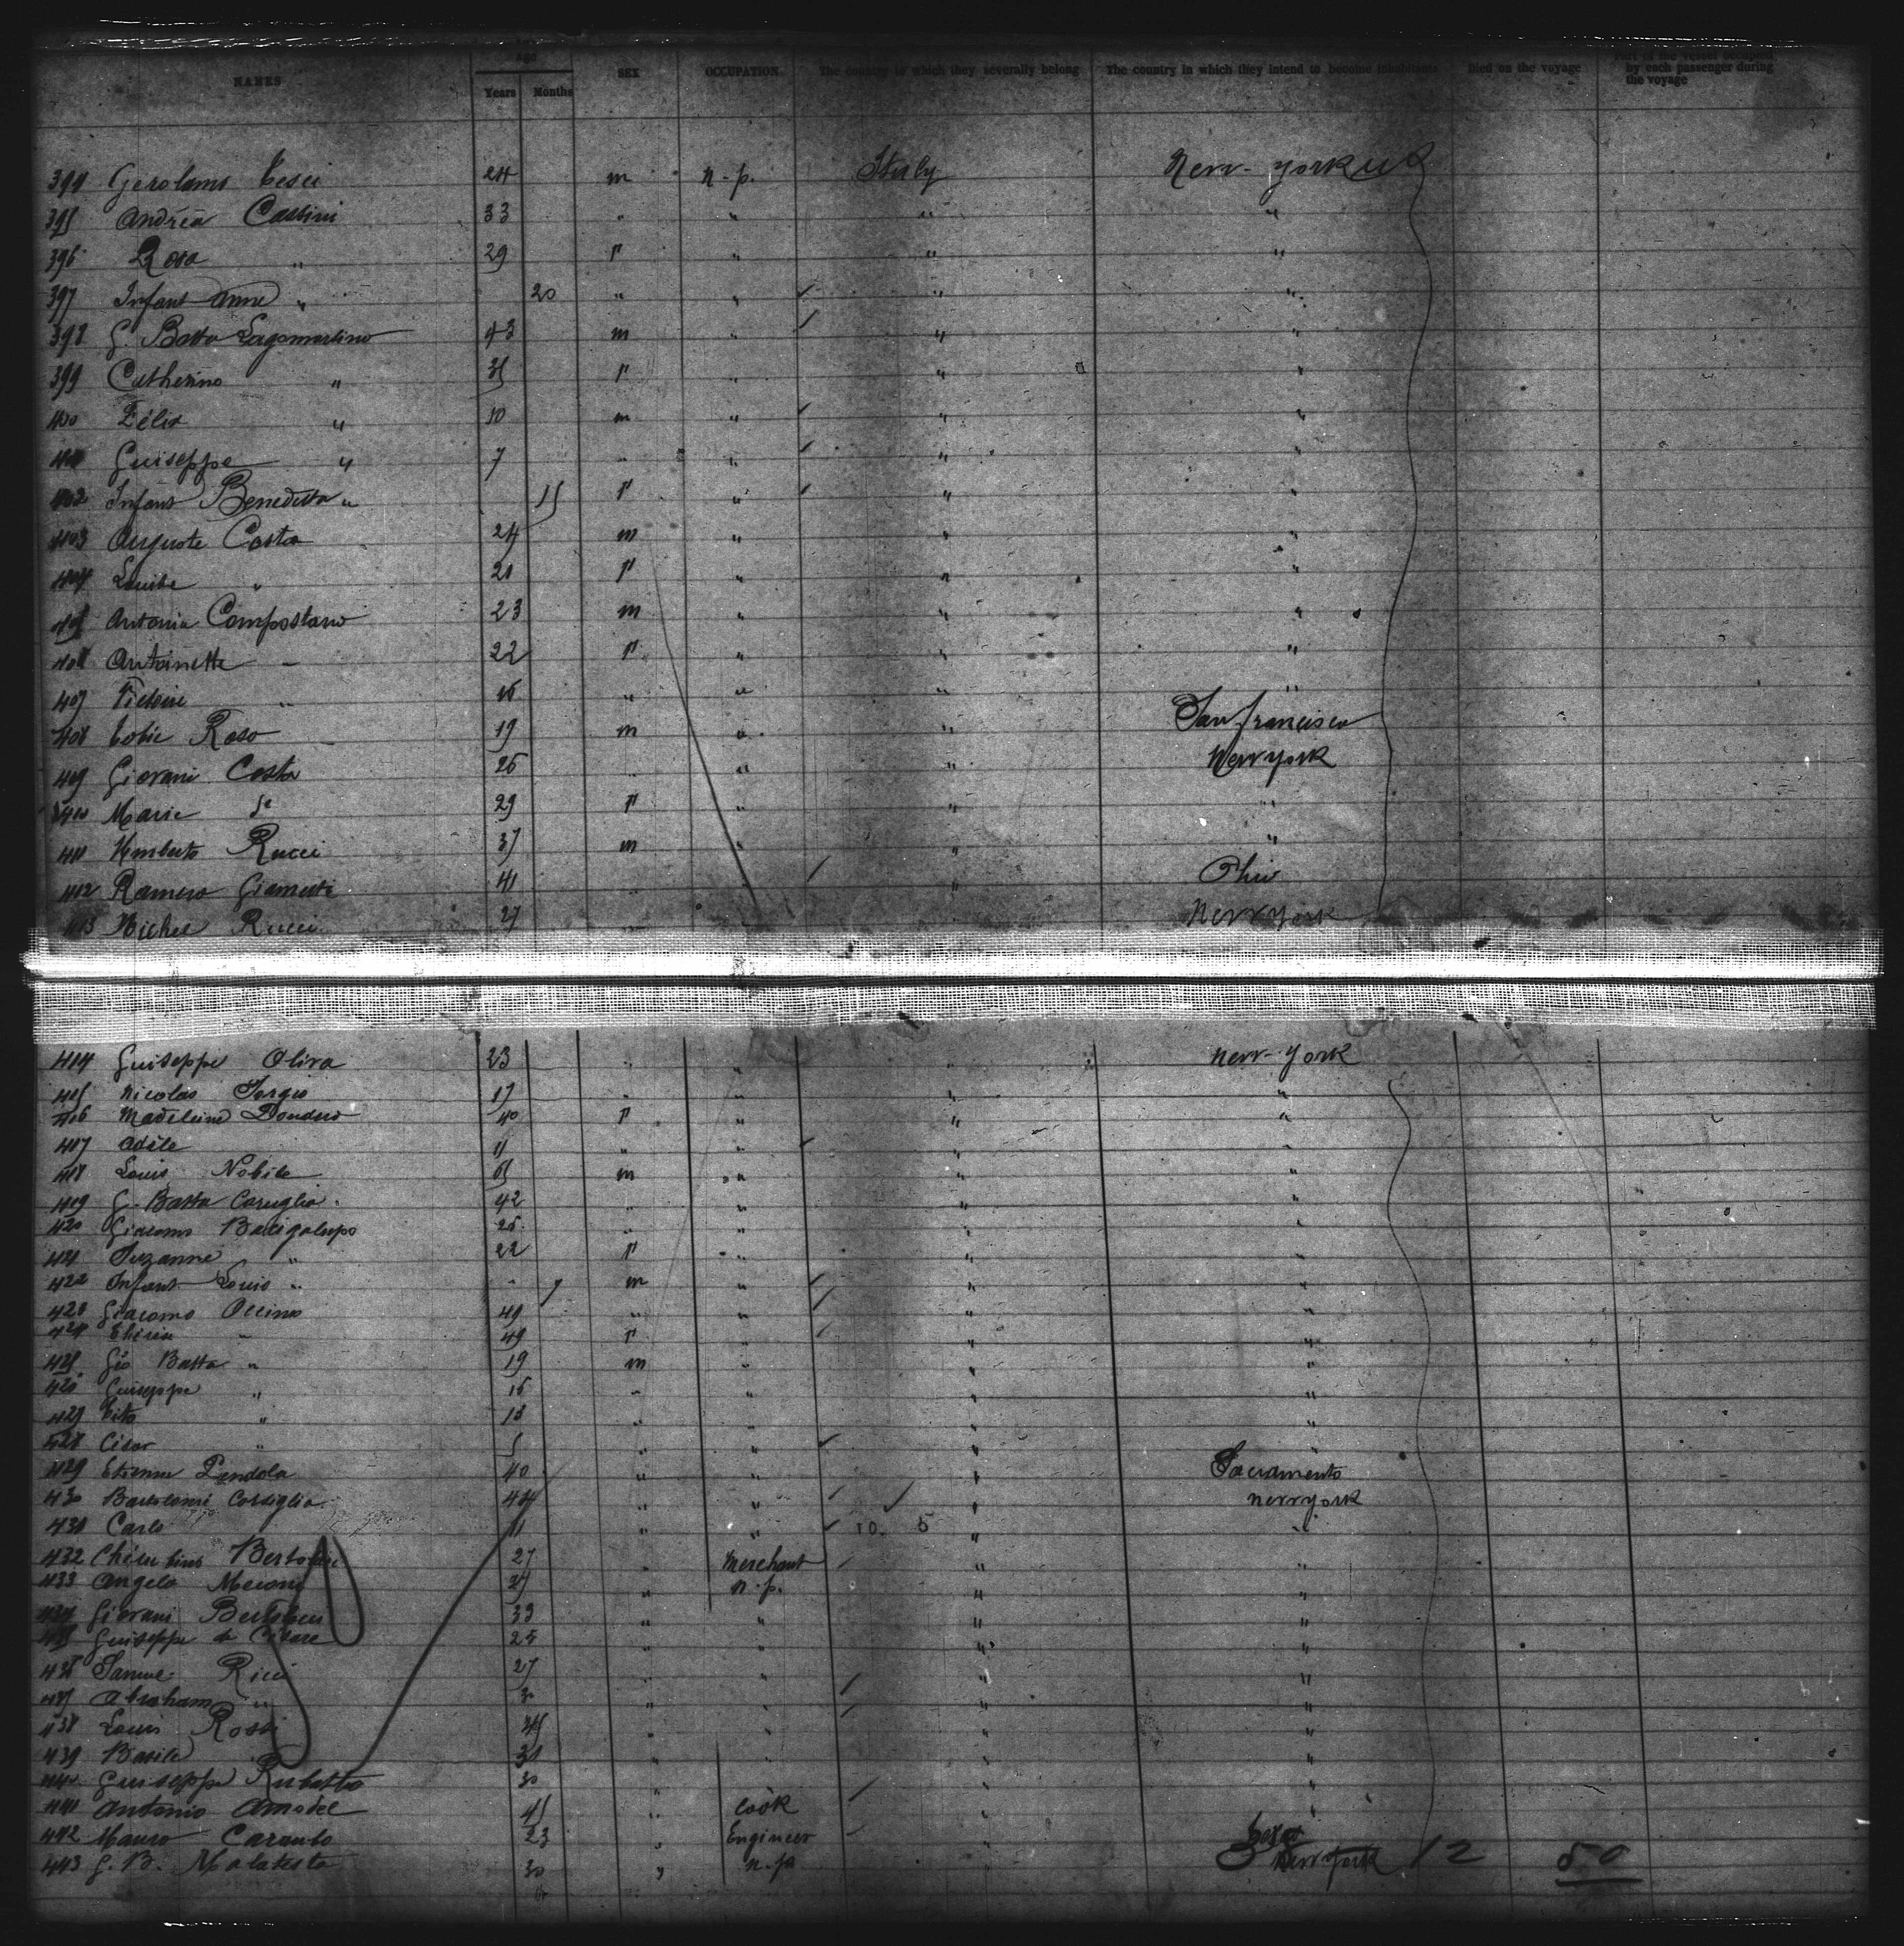 NAMES Age Years Months SEX OCCUPATION The country to which they severally belong The country in which they intend to become inhabitants Died on the voyage Part of the vessel occupied by each passenger during the voyage
394 Gerolamo 24 m n-p. Italy New-york
395 Andréa Cassini 33 " " " "
396 Rosa " 29 f " " "
397 Infant Anne " 20 " " " "
398 G. Batta Lagomarsino 43 m " " "
399 Catherina " 35 f " " "
400 Félix " 10 m " " "
401 Guiseppe " 7 " " " "
402 Infant Benedetta " 15 f " " "
403 Auguste Costa 24 m " " "
404 Louise " 21 f " " "
405 Antonia Compostano 23 m " " "
406 Antoinette - 22 f " " "
407 Victoire " 16 " " " "
408 Roso 19 m " " San francisco
409 Giovani Costa 26 " " " New york
410 Marie do 29 f " " "
411 Umberto Rucci 37 m " " "
412 Ramero 41 " " " Ohio
413 Michel Rucci 27 " New york
414 Guiseppe Oliva 23 " " " New-york
415 Nicolas 17 " " " "
416 Madeleine Dondero 40 f " " "
417 Adèle 11 " " " "
418 Louis Nobile 65 m " " "
419 G. Batta Caruglia 42 " " " "
420 Giacomo Bacigalupo 26 " " " "
421 Suzanne " 22 f " " "
422 Infant Louis " - 7 m " " "
423 Giacomo 49 " " " "
424 49 f " " "
425 Gio Batta " 19 m " " "
426 Guiseppe " 16 " " " "
427 Vito " 13 " " " "
428 César " 5 " " " "
429 Etienne Pendola 40 " " " Sacramento
430 Bartolomé Corsiglia 44 " " " New york
431 Carlo 11 " " 10. 5 " "
432 27 " Merchant " "
433 Angelo 27 " n.p. " "
434 Giovani 33 " " " "
435 Guiseppe de Césare 25 " " " "
436 Ricci 27 " " " "
437 Abraham " 30 " " " "
438 Louis Rossi 45 " " " "
439 Basile " 31 " " " "
440 Guiseppe Rubatto 30 " " " "
441 Antonio Amodee 45 " Cook " "
442 Mauro 23 " Engineer "
443 G. B. Malatesta 30 " n.p. New York 12 50